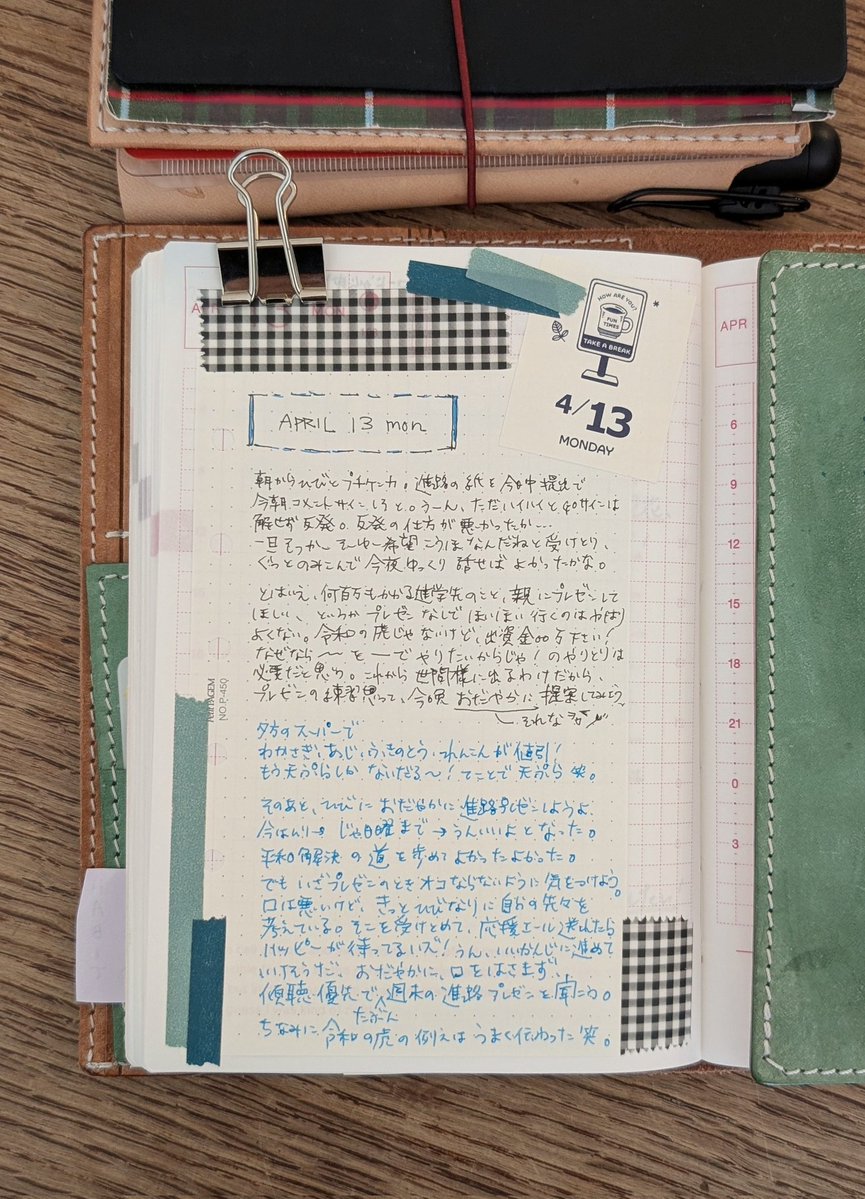 APR
MON
HOW ARE YOU?
FUN TIMES
TAKE A BREAK
4/13
MONDAY
APRIL 13 mon
朝からひびとプチケンカ。進路の紙を今日中提出で
今朝コメントサインしろと。うーん、ただハイハイとgoサインは
解せず反発。反発の仕方が悪かったか…
一旦そっかー そーゆー希望こうほなんだねと受けとり、
ぐっとのみこんで今夜ゆっくり話せばよかったかな。
とはいえ、何百万もかかる進学先のこと、親にプレゼンして
ほしい、というかプレゼンなしでほいほい行くのはやはり
よくない。令和の虎じゃないけど、出資金〇〇万下さい！
なぜなら〜〜を―でやりたいからじゃ！のやりとりは
必要だと思う。これから世間様に出るわけだから、
プレゼンの練習思って、今晩おだやかに提案してみよう。
それな
夕方のスーパーで
わかさぎ、あじ、ふきのとう、れんこんが値引！
もう天ぷらしかないだろ〜！てことで天ぷら笑。
そのあと、ひびにおだやかに進路プレゼンしようよ、
今はムリ→じゃ日曜まで→うんいいよとなった。
平和解決の道を歩めてよかったよかった。
でもいざプレゼンのときオコならないように気をつけよう。
口は悪いけど、きっとひびなりに自分の先々を
考えている。そこを受けとめて、応援エール送れたら
ハッピーが待ってるハズ！うん、いいかんじに進めて
いけそうだ。おだやかに、口をはさまず、
傾聴優先で、週末の進路プレゼンを聞こう。
たぶん
ちなみに令和の虎の例えはうまく伝わった笑。
PAPTAGEM
NO.P-450
APR
6
9
12
15
18
21
0
3